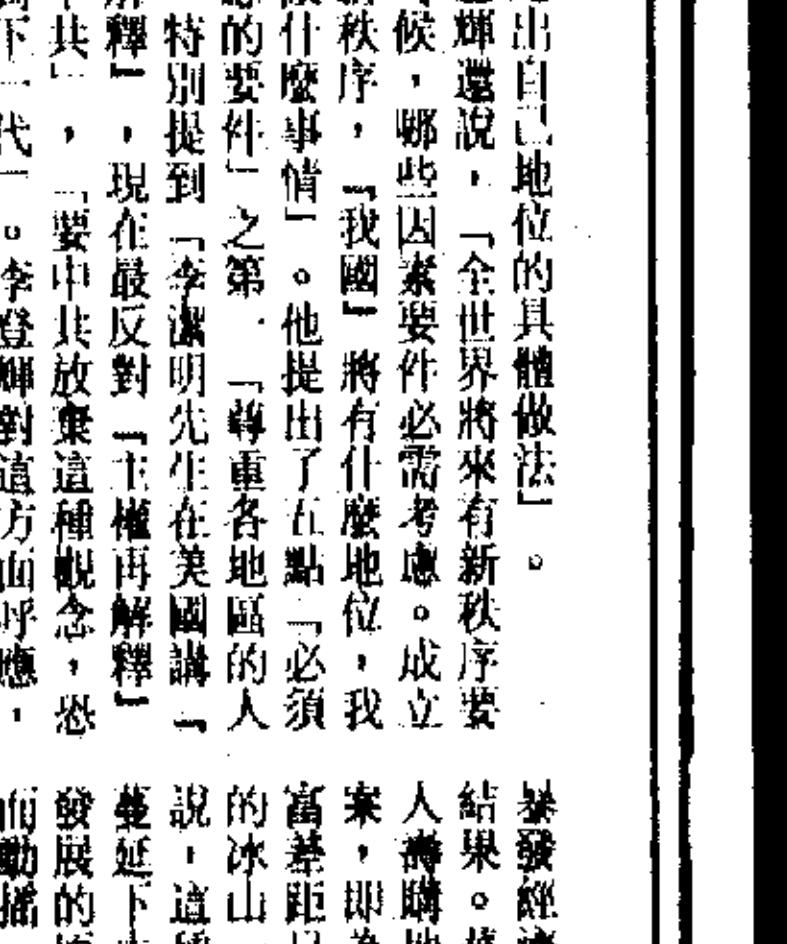 出自己地位的具體做法」。
輝還說，「全世界將來有新秩序要
候，哪些因素要件必需考慮。成立
秩序，「我國」將有什麼地位，我
什麼事情」。他提出了五點「必須
的要件」之第一「尊重各地區的人
特別提到「李潔明先生在美國講「
釋」，現在最反對「主權再解釋」
共」，「要中共放棄這種觀念，恐
下一代」。李登輝對這方面呼應，
暴發經
結果。
人壽購
案，即
富差距
的冰山
說，這
蔓延下
發展的
而動搖